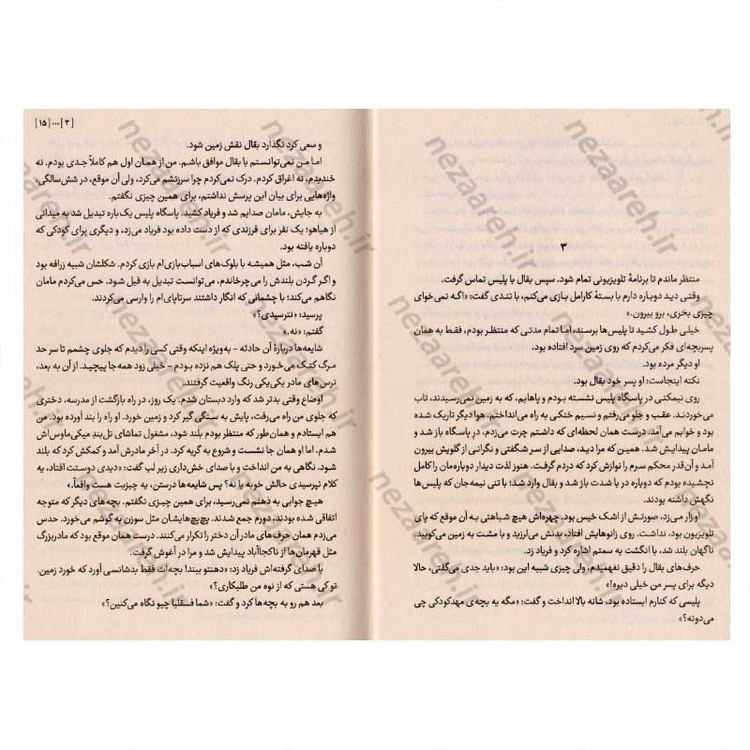 ۳
منتظر ماندم تا برنامهٔ تلویزیونی تمام شود. سپس بقال با پلیس تماس گرفت.
وقتی دید دوباره دارم با بستهٔ کارامل بازی می‌کنم، با تندی گفت: «اگه نمی‌خوای
چیزی بخری، برو بیرون.»
خیلی طول کشید تا پلیس‌ها برسند، اما تمام مدتی که منتظر بودم، فقط به همان
پسربچه‌ای فکر می‌کردم که روی زمین سرد افتاده بود.
او دیگر مرده بود.
نکته اینجاست: او پسر خود بقال بود.
روی نیمکتی در پاسگاه پلیس نشسته بودم و پاهایم، که به زمین نمی‌رسیدند، تاب
می‌خوردند. عقب و جلو می‌رفتم و نسیم خنکی به راه می‌انداختم. هوا دیگر تاریک شده
بود و خوابم می‌آمد. درست همان لحظه‌ای که داشتم چرت می‌زدم، در پاسگاه باز شد و
مامان پیدایش شد. همین‌که مرا دید، صدایی از سر شگفتی و نگرانی از گلویش بیرون
آمد و آن‌قدر محکم سرم را نوازش کرد که دردم گرفت. هنوز لذت دیدار دوباره‌مان را کامل
نچشیده بودم که دوباره در با شدت باز شد و بقال وارد شد؛ با تنی نیمه‌جان که پلیس‌ها
نگهش داشته بودند.
او زار می‌زد، صورتش از اشک خیس بود. چهره‌اش هیچ شباهتی به آن موقع که پای
تلویزیون بود، نداشت. روی زانوهایش افتاد، بدنش می‌لرزید و با مشت به زمین می‌کوبید.
ناگهان بلند شد، با انگشت به سمتم اشاره کرد و فریاد زد.
حرف‌های بقال را دقیق نفهمیدم، ولی چیزی شبیه این بود: «باید جدی می‌گفتی، حالا
دیگه برای پسر من خیلی دیره!»
پلیسی که کنارم ایستاده بود، شانه بالا انداخت و گفت: «مگه یه بچه‌ی مهدکودکی چی
می‌دونه؟»
[۳]...[۱۵]
و سعی کرد نگذارد بقال نقش زمین شود.
اما من نمی‌توانستم با بقال موافق باشم. من از همان اول هم کاملاً جدی بودم. نه
خندیدم، نه اغراق کردم. درک نمی‌کردم چرا سرزنشم می‌کرد، ولی آن موقع، در شش‌سالگی،
واژه‌هایی برای بیان این پرسش نداشتم، برای همین چیزی نگفتم.
به جایش، مامان صدایم شد و فریاد کشید. پاسگاه پلیس یک‌باره تبدیل شد به میدانی
از هیاهو؛ یک نفر برای فرزندی که از دست داده بود فریاد می‌زد، و دیگری برای کودکی که
دوباره یافته بود.
آن شب، مثل همیشه با بلوک‌های اسباب‌بازی‌ام بازی کردم. شکلشان شبیه زرافه بود
و اگر گردن بلندش را می‌چرخاندم، می‌توانست تبدیل به فیل شود. حس می‌کردم مامان
نگاهم می‌کند؛ با چشمانی که انگار داشتند سرتاپای‌ام را وارسی می‌کردند.
پرسید: «نترسیدی؟»
گفتم: «نه.»
شایعه‌ها دربارهٔ آن حادثه – به‌ویژه اینکه وقتی کسی را دیدم که جلوی چشمم تا سر حد
مرگ کتک می‌خورد و حتی پلک هم نزده بودم – خیلی زود همه‌جا پیچید. از آن به بعد،
ترس‌های مادر یکی‌یکی رنگ واقعیت گرفتند.
اوضاع وقتی بدتر شد که وارد دبستان شدم. یک روز، در راه بازگشت از مدرسه، دختری
که جلوی من راه می‌رفت، پایش به سنگی گیر کرد و زمین خورد. او راه را بند آورده بود. من
هم ایستادم و همان‌طور که منتظر بودم بلند شود، مشغول تماشای تل‌بندِ میکی‌ماوس‌اش
شدم. اما او همان جا نشست و شروع به گریه کرد. در آخر مادرش آمد و کمکش کرد که بلند
شود. نگاهی به من انداخت و با صدای خش‌داری زیر لب گفت: «دیدی دوستت افتاد، یه
کلام نپرسیدی حالش خوبه یا نه؟ پس شایعه‌ها درستن، یه چیزیت هست واقعاً.»
هیچ جوابی به ذهنم نمی‌رسید، برای همین چیزی نگفتم. بچه‌های دیگر که متوجه
اتفاقی شده بودند، دورم جمع شدند. پچ‌پچ‌هایشان مثل سوزن به گوشم می‌خورد. حدس
می‌زدم همان حرف‌های مادر آن دختر را تکرار می‌کنند. درست همان موقع بود که مادربزرگ
مثل قهرمان‌ها از ناکجاآباد پیدایش شد و مرا در آغوش گرفت.
با صدای گرفته‌اش فریاد زد: «دهنتو ببند! بچه‌ات فقط بدشانسی آورد که خورد زمین.
تو کی هستی که از نوه من طلبکاری؟»
بعد هم رو به بچه‌ها کرد و گفت: «شما فسقلیا چیو نگاه می‌کنین؟»
nezaareh.ir